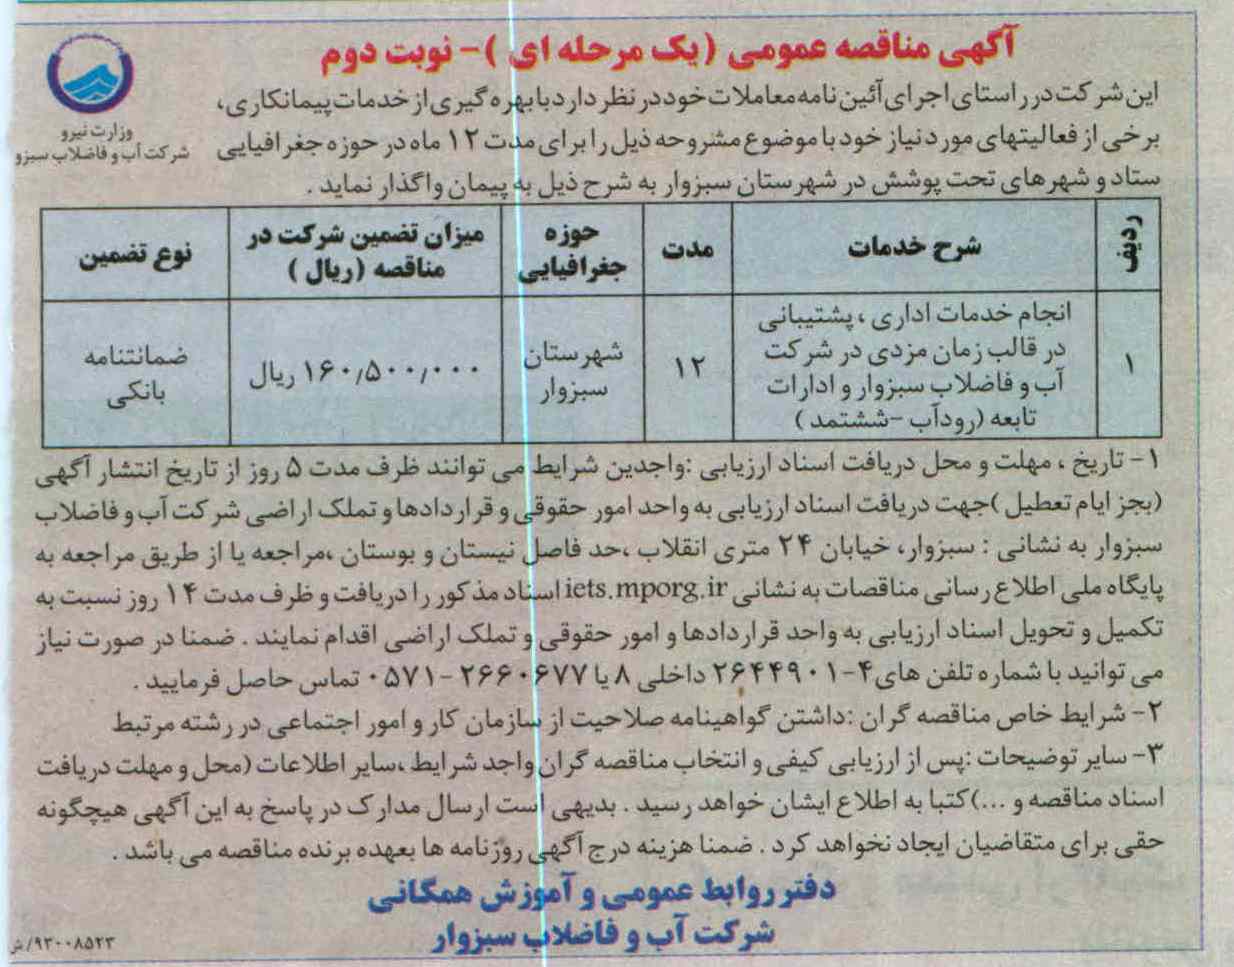 آگهی مناقصه عمومی (یک مرحله ای )- نوبت دوم
وزارت نیرو
شرکت آب و فاضلاب سبزو
این شرکت در راستای اجرای آئین نامه معاملات خود در نظر دارد با بهره گیری از خدمات پیمانکاری،
برخی از فعالیتهای مورد نیاز خود با موضوع مشروحه ذیل را برای مدت ۱۲ ماه در حوزه جغرافیایی
ستاد و شهرهای تحت پوشش در شهرستان سبزوار به شرح ذیل به پیمان واگذار نماید .
ردیف
شرح خدمات
مدت
حوزه
جغرافیایی
میزان تضمین شرکت در
مناقصه (ریال )
نوع تضمین
۱
انجام خدمات اداری ، پشتیبانی
در قالب زمان مزدی در شرکت
آب و فاضلاب سبزوار و ادارات
تابعه (رودآب -ششتمد )
۱۲
شهرستان
سبزوار
۱۶۰٫۵۰۰٫۰۰۰ ریال
ضمانتنامه
بانکی
۱- تاریخ ، مهلت و محل دریافت اسناد ارزیابی :واجدین شرایط می توانند ظرف مدت ۵ روز از تاریخ انتشار آگهی
(بجز ایام تعطیل )جهت دریافت اسناد ارزیابی به واحد امور حقوقی و قراردادها و تملک اراضی شرکت آب و فاضلاب
سبزوار به نشانی : سبزوار، خیابان ۲۴ متری انقلاب ،حد فاصل نیستان و بوستان ،مراجعه یا از طریق مراجعه به
پایگاه ملی اطلاع رسانی مناقصات به نشانی iets.mporg.ir اسناد مذکور را دریافت و ظرف مدت ۱۴ روز نسبت به
تکمیل و تحویل اسناد ارزیابی به واحد قراردادها و امور حقوقی و تملک اراضی اقدام نمایند . ضمنا در صورت نیاز
می توانید با شماره تلفن های ۴-۲۶۴۴۹۰۱ داخلی ۸ یا ۲۶۶۰۶۷۷ -۰۵۷۱ تماس حاصل فرمایید .
۲- شرایط خاص مناقصه گران :داشتن گواهینامه صلاحیت از سازمان کار و امور اجتماعی در رشته مرتبط
۳- سایر توضیحات :پس از ارزیابی کیفی و انتخاب مناقصه گران واجد شرایط ،سایر اطلاعات (محل و مهلت دریافت
اسناد مناقصه و ...)کتبا به اطلاع ایشان خواهد رسید . بدیهی است ارسال مدارک در پاسخ به این آگهی هیچگونه
حقی برای متقاضیان ایجاد نخواهد کرد . ضمنا هزینه درج آگهی روزنامه ها بعهده برنده مناقصه می باشد .
دفتر روابط عمومی و آموزش همگانی
شرکت آب و فاضلاب سبزوار
۹۳۰۰۸۵۲۳/ش